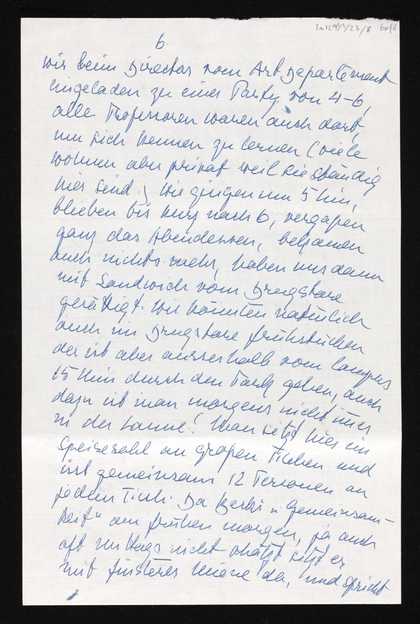 6.
wir beim Director vom Art Departement
eingeladen zu einer Party von 4-6,
alle Professoren waren auch dort,
um sich kennen zu lernen (viele
wohnen aber privat weil sie ständig
hier sind.) Wir gingen um 5 hin,
blieben bis kurz nach 6, vergaßen
ganz das Abendessen, bekamen
auch nichts mehr, haben uns dann
mit Sandwich vom Drugstore
gesättigt. Wir könnten natürlich
auch im Drugstore frühstücken
der ist aber ausserhalb vom Campus
15 Min durch den Park gehen, auch
dazu ist man morgens nicht immer
in der Laune! Man sitzt hier im
Speisesaal an großen Tischen und
isst gemeinsam 12 Personen an
jedem Tisch. Da "Gemeinsam-
keit" am frühen morgen, ja auch
oft mittags nicht schätzt sitzt er
mit finsterer Miene da, und spricht